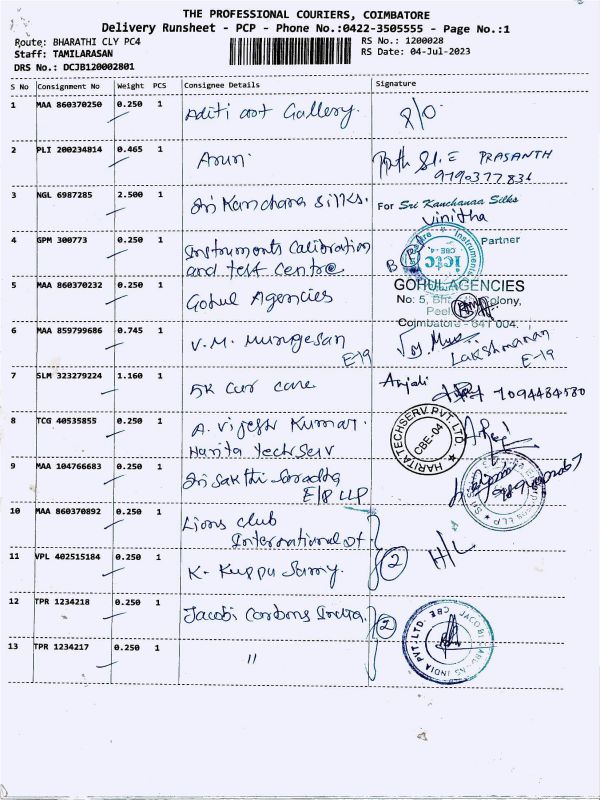 THE PROFESSIONAL COURIERS, COIMBATORE
Delivery Runsheet - PCP - Phone No.:0422-3505555 - Page No.:1
Route: BHARATHI CLY PC4
RS No.: 1200028
Staff: TAMILARASAN
RS Date: 04-Jul-2023
DRS No.: DCJB120002801
S No Consignment No Weight PCS Consignee Details Signature
1 MAA 860370250 0.250 1 Aditi art Gallery.
2 PLI 200234814 0.465 1 Arun. PRASANTH
3 NGL 6987285 2.500 1 Sri Kanchana Silks. For Sri Kanchanaa Silks
Vinitha
Partner
4 GPM 300773 0.250 1 Instruments Calibration
and test Centre
ictc
CBE-4.
5 MAA 860370232 0.250 1 Gohul Agencies
GOHUL AGENCIES
No: 5, Colony,
Coimbatore - 641 004.
6 MAA 859799686 0.745 1 V.M. Murugesan
E-19
Lakshmanan
E-19
7 SLM 323279224 1.160 1 SK Car care Anjali
8 TCG 40535855 0.250 1 A. Vijesh Kumar.
Harita Techserv
HARITA TECHSERV PVT. LTD.
CBE-04
9 MAA 104766683 0.250 1 Sri Sakthi Saradha
E/8 LLP
10 MAA 860370892 0.250 1 Lions club
International Dt
H/L
11 VPL 402515184 0.250 1 K. Kuppu Samy. 2
12 TPR 1234218 0.250 1 Jacobi Carbons India. 2
13 TPR 1234217 0.250 1 "
JACOBI CARBONS INDIA PVT. LTD. CBE